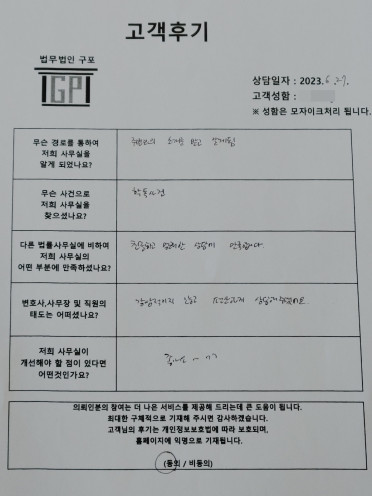 고객후기
법무법인 구포
GP
상담일자 : 2023. 6. 27.
고객성함 :
※ 성함은 모자이크처리 됩니다.
무슨 경로를 통하여
저희 사무실을
알게 되었나요?
받고
무슨 사건으로
저희 사무실을
찾으셨나요?
학폭사건
다른 법률사무실에 비하여
저희 사무실의
어떤 부분에 만족하셨나요?
친절하고 상담
변호사,사무장 및 직원의
태도는 어떠셨나요?
저희 사무실이
개선해야 할 점이 있다면
어떤것인가요?
의뢰인분의 참여는 더 나은 서비스를 제공해 드리는데 큰 도움이 됩니다.
최대한 구체적으로 기재해 주시면 감사하겠습니다.
고객님의 후기는 개인정보보호법에 따라 보호되며,
홈페이지에 익명으로 기재됩니다.
(동의 / 비동의)